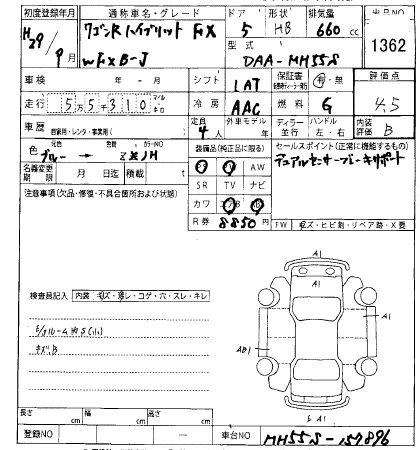 初度登録年月 通称車名・グレード ドア 形状 排気量 出品NO
H29 ワゴンRハイブリッド FX 5 HB 660 cc 1362
9月 WFXB-J 型式 DAA-MH55S
車検 年 - 月 シフト LAT 保証書 有・無 評価点
走行 55310 マイル キロ 冷房 AAC 燃料 G 4.5
車歴 自家用・レンタ・事業用( ) 定員 4人 外車モデル ディーラー 並行 ハンドル 左・右 内装評価 B
色 元色 ブルー → 色替 カラーNO ZWH 装備品(純正品に限る) セールスポイント(正常に機能するもの)
名義変更期限 月 日迄 積載 AW デュアルセンサーブレーキサポート
注意事項(欠品・修復・不具合箇所および状態) SR TV ナビ
カワ エアB AB
R券 8850円 FW キズ・ヒビ割・リペア跡・X要
A1
検査員記入 内装 キズ・汚レ・コゲ・穴・スレ・キレ A1
A1
AB1
キズB
E A1
長さ cm 幅 cm 高さ cm
登録NO - 車台NO MH55S-157896